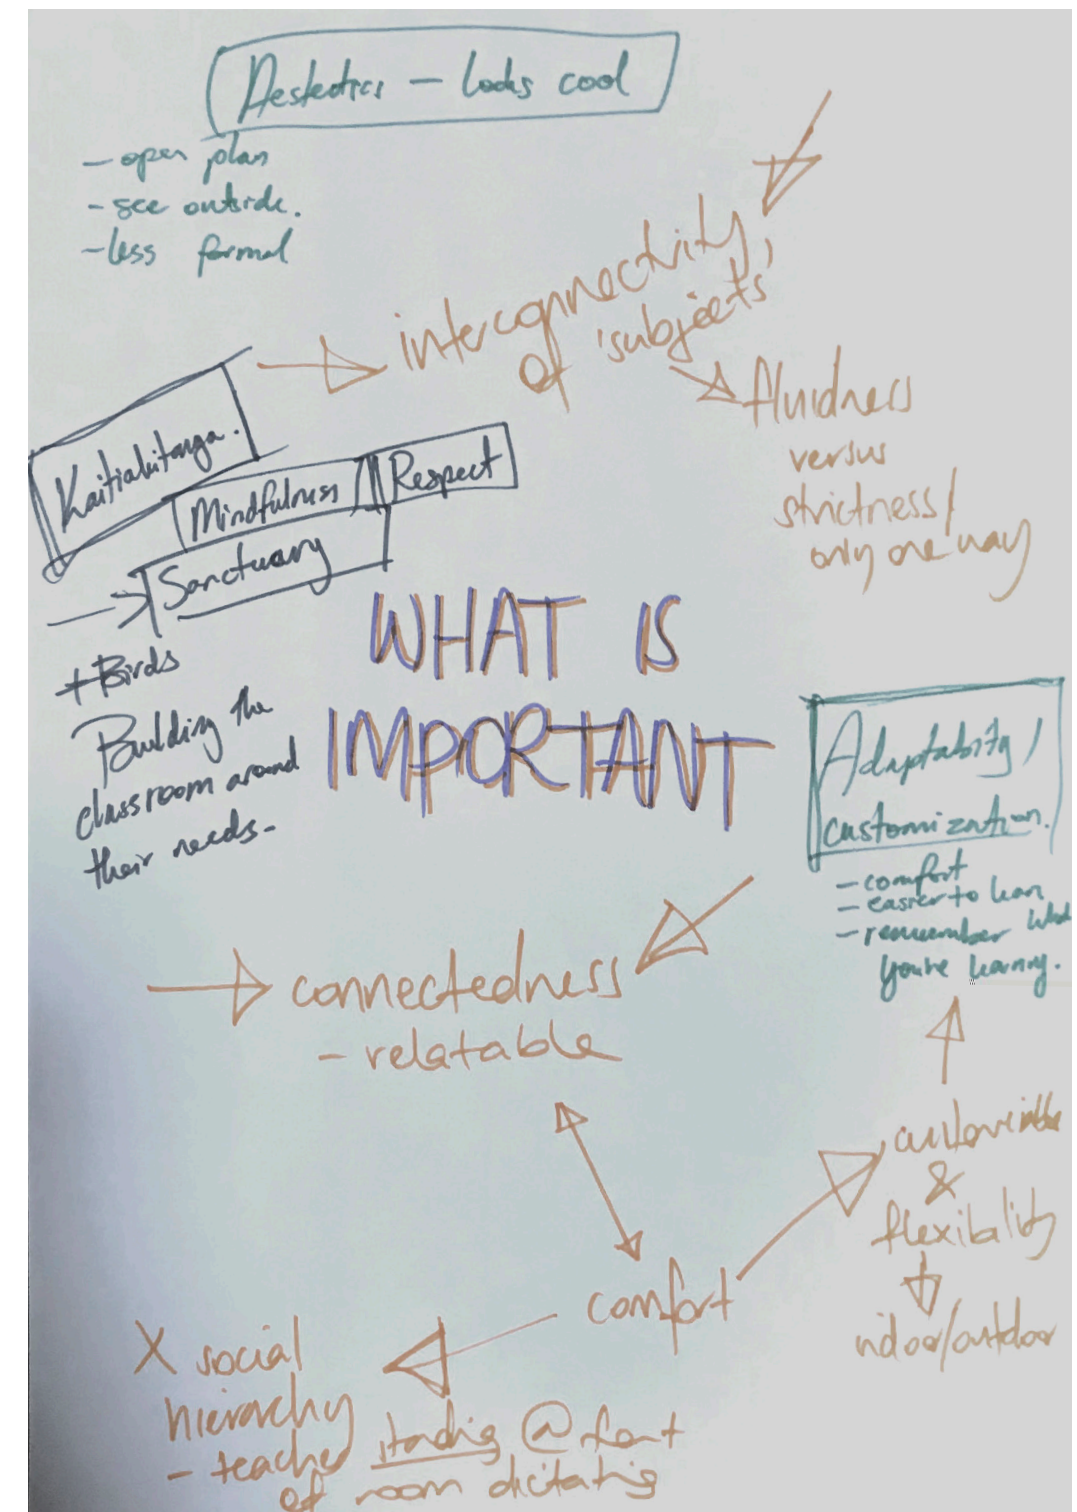 Aestedics — looks cool
- open plan
- see outside.
- less formal
interconnectivity
of 'subjects'
fluidness
versus
strictness/
only one way
Kaitiakitanga.
Mindfulness
Respect
Sanctuary
+ Birds
Building the
classroom around
their needs-
WHAT IS
IMPORTANT
Adaptability/
customization.
- comfort
- easier to learn
- remember what
you're learning.
connectedness
- relatable
&
flexibility
indoor/outdoor
comfort
X social
hierarchy
- teacher standing @ front
of room dictating